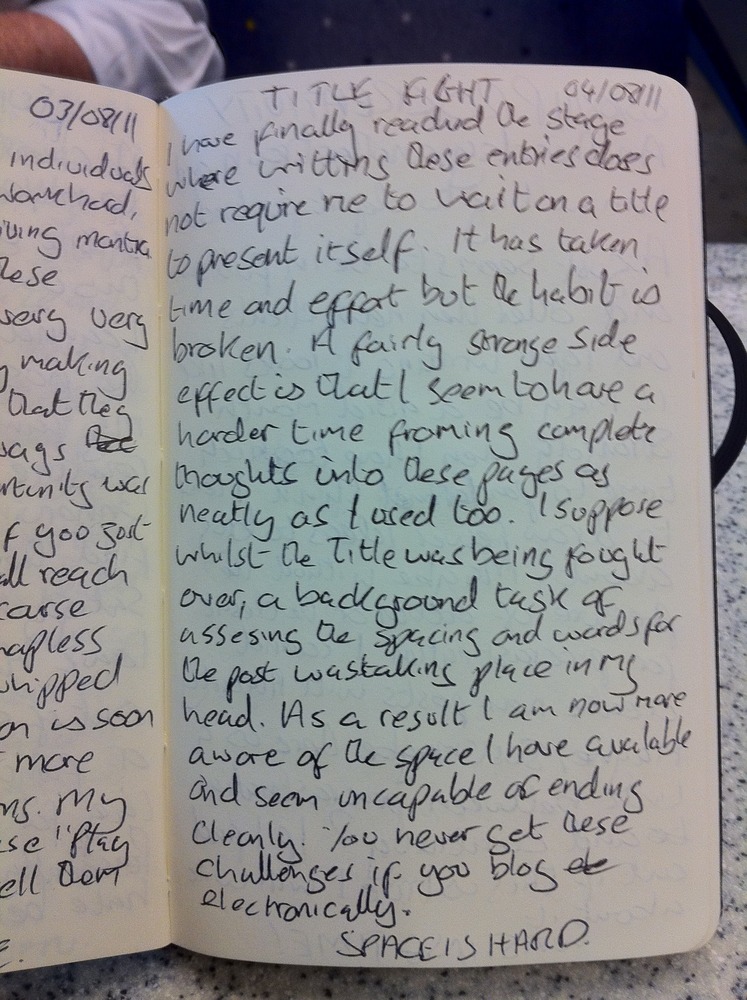 03/08/11
individuals
iving mantra
these
very
making
that they
says
if you just
all reach
hapless
whipped
on is soon
more
My
ell
TITLE FIGHT 04/08/11
I have finally reached the stage
where writting these entries does
not require me to wait on a title
to present itself. It has taken
time and effort but the habit is
broken. A fairly strange side
effect is that I seem to have a
harder time froming complete
thoughts into these pages as
neatly as I used too. I suppose
whilst the Title was being fought
over, a background task of
assesing the spacing and words for
the post was taking place in my
head. As a result I am now more
aware of the space I have available
and seem uncapable of ending
cleanly. You never get these
challenges if you blog
electronically.
SPACE IS HARD.